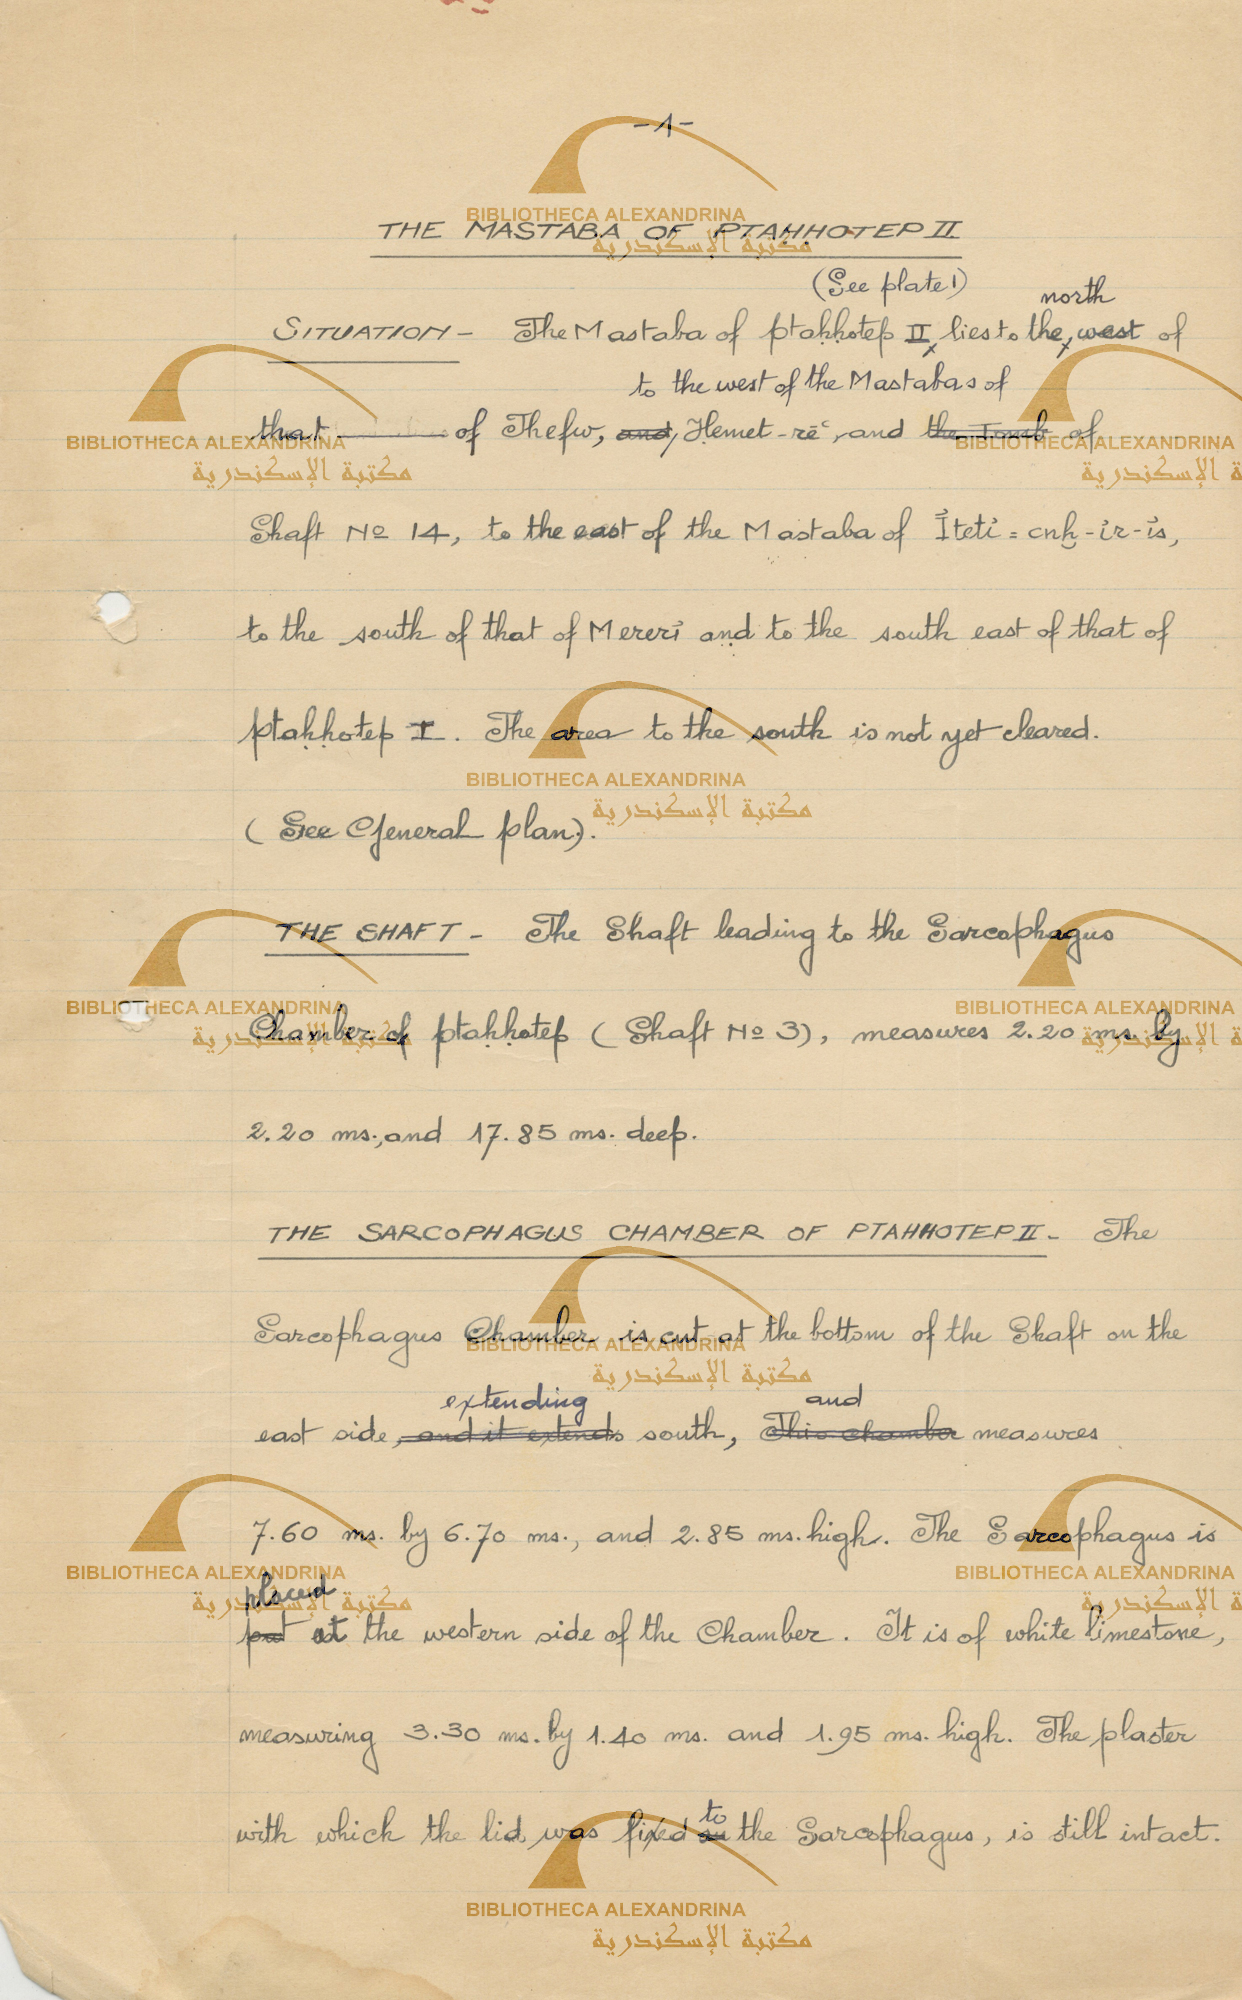 -1-
THE MASTABA OF PTAHHOTEP II
(See plate 1)
north
SITUATION - The Mastaba of Ptaḥḥotep II, lies to the, west of
to the west of the Mastabas of
that of Thefw, and, Ḥemet-rēʿ, and the Tomb of
Shaft No 14, to the east of the Mastaba of Íteti = cnḫ-ír-ís,
to the south of that of Mereri and to the south east of that of
Ptaḥḥotep I. The area to the south is not yet cleared.
(See General plan).
THE SHAFT - The Shaft leading to the Sarcophagus
Chamber of Ptaḥḥotep (Shaft No 3), measures 2.20 ms. by
2.20 ms., and 17.85 ms. deep.
THE SARCOPHAGUS CHAMBER OF PTAHHOTEP II - The
Sarcophagus Chamber is cut at the bottom of the Shaft on the
extending and
east side, and it extends south, This chamber measures
7.60 ms. by 6.70 ms., and 2.85 ms. high. The Sarcophagus is
placed
put at the western side of the Chamber. It is of white limestone,
measuring 3.30 ms. by 1.40 ms. and 1.95 ms. high. The plaster
to
with which the lid was fixed on the Sarcophagus, is still intact.
BIBLIOTHECA ALEXANDRINA
مكتبة الإسكندرية